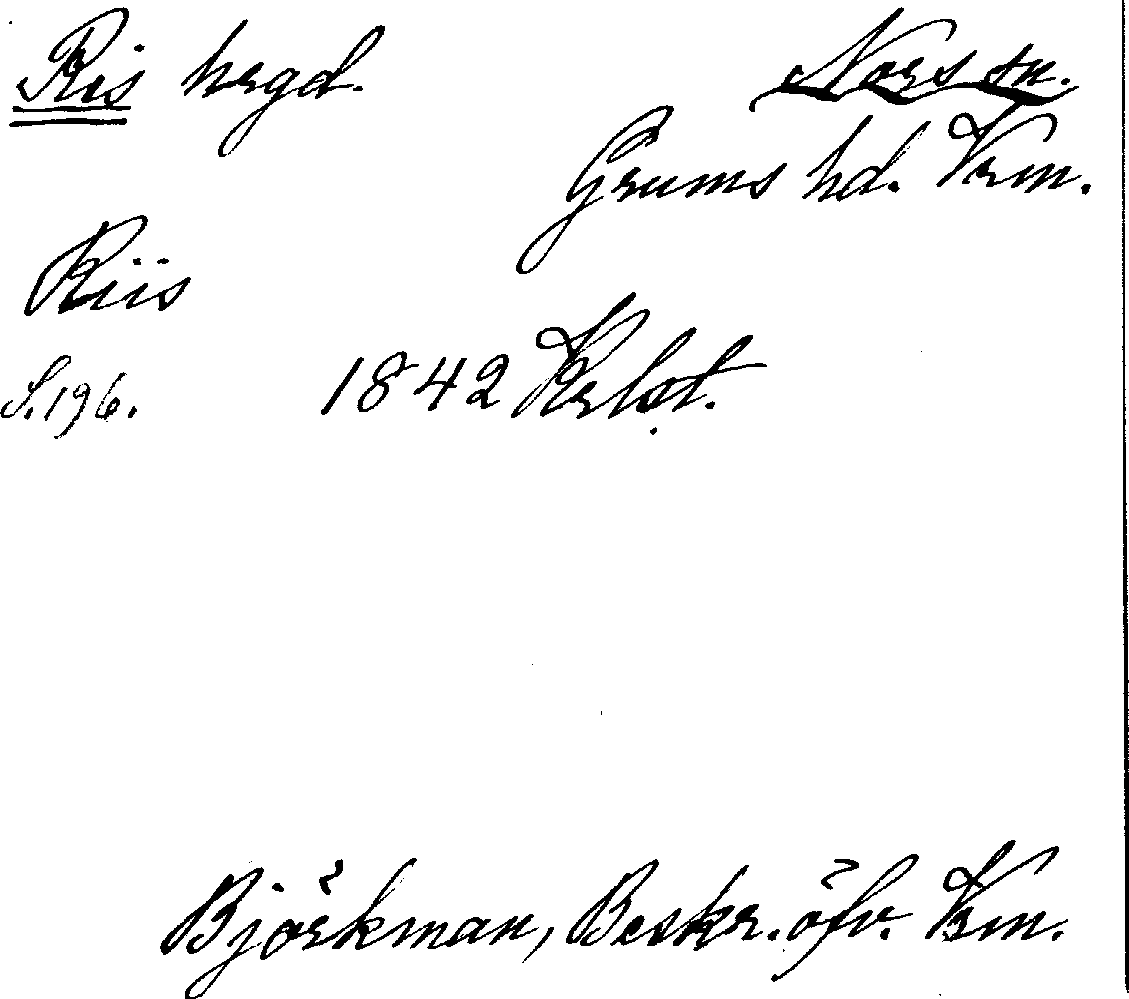 Ris hrgd.
Nors sn.
Grums hd. Vrm.
Riis
S. 196.
1842 Krlst.
Björkman, Beskr. öfv. Vrm.